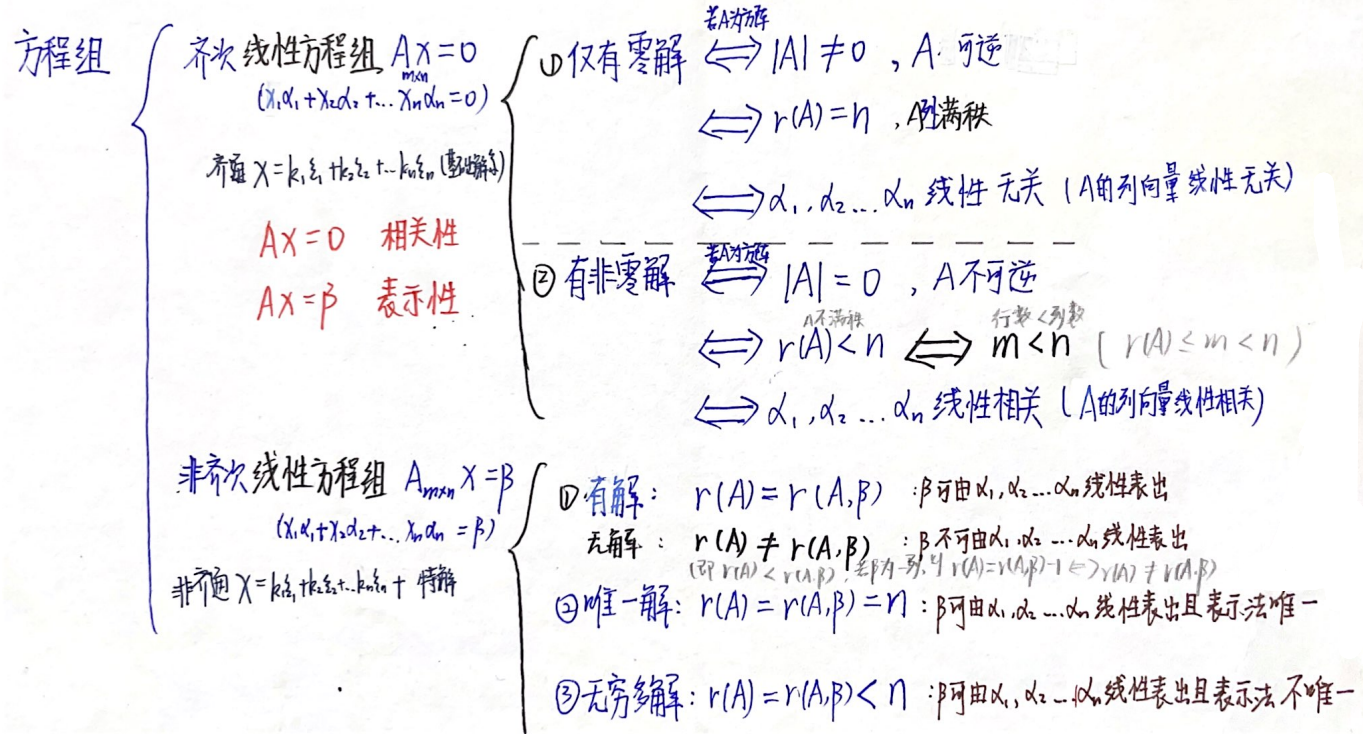 方程组
齐次线性方程组 Ax=0
m×n
(x₁α₁+x₂α₂+...xₙαₙ=0)
齐通 x=k₁ξ₁+k₂ξ₂+...kₙξₙ(基础解系)
Ax=0 相关性
Ax=β 表示性
①仅有零解 若A为方阵 ⟺ |A|≠0 , A可逆
⟺ r(A)=n , A列满秩
⟺ α₁,α₂...αₙ 线性无关 (A的列向量线性无关)
②有非零解 若A为方阵 ⟺ |A|=0 , A不可逆
A不满秩 行数<列数
⟺ r(A)<n ⟺ m<n ( r(A)≤m<n )
⟺ α₁,α₂...αₙ 线性相关 (A的列向量线性相关)
非齐次线性方程组 Aₘ×ₙx=β
(x₁α₁+x₂α₂+...xₙαₙ=β)
非齐通 x=k₁ξ₁+k₂ξ₂+...kₙξₙ+ 特解
①有解: r(A)=r(A,β) :β可由α₁,α₂...αₙ线性表出
无解: r(A)≠r(A,β) :β不可由α₁,α₂...αₙ线性表出
(即r(A)<r(A,β), 若β为一列,则 r(A)=r(A,β)-1⟺r(A)≠r(A,β)
②唯一解: r(A)=r(A,β)=n :β可由α₁,α₂...αₙ线性表出且表示法唯一
③无穷多解: r(A)=r(A,β)<n :β可由α₁,α₂...αₙ线性表出且表示法不唯一